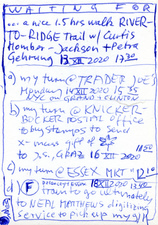 WAITING FOR
... a nice 1.5 hrs walk RIVER-
TO-RIDGE Trail w/ Curtis
Homber - Jackson + Petra
Gehring 13 XII 2020 1730
a) my turn @ TRADER JOE'S
Monday 14 XII 2020 15 35
NYC on GRAND & CLINTON
b) my turn @ KNICKER-
BOCKER POSTAL OFFICE
to buy stamps to send
x-mas gift of
to J.S., GRAZ 16 XII 2020
c) my turn @ ESSEX MKT 12 10
d) F 18 XII 2020
train to go ultimately
to NEAL MATTHEWS digitizing
service to pick up my